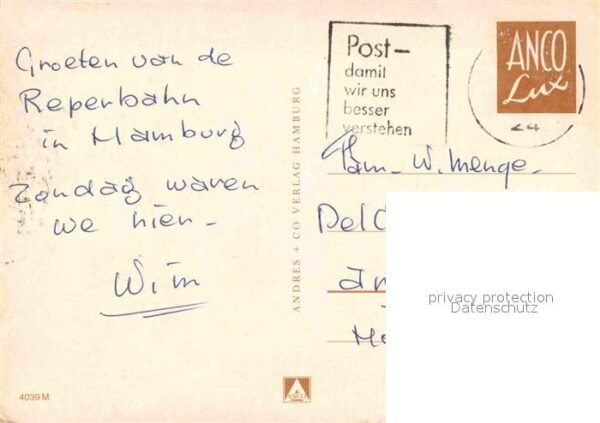 Groeten van de
Reperbahn
in Hamburg
Zondag waren
we hier -
Wim
ANDRES + CO VERLAG HAMBURG
4039 M
ANCO
Post-
damit
wir uns
besser
verstehen
ANCO
Lux
24
Fam. W. Menge.
privacy protection
Datenschutz